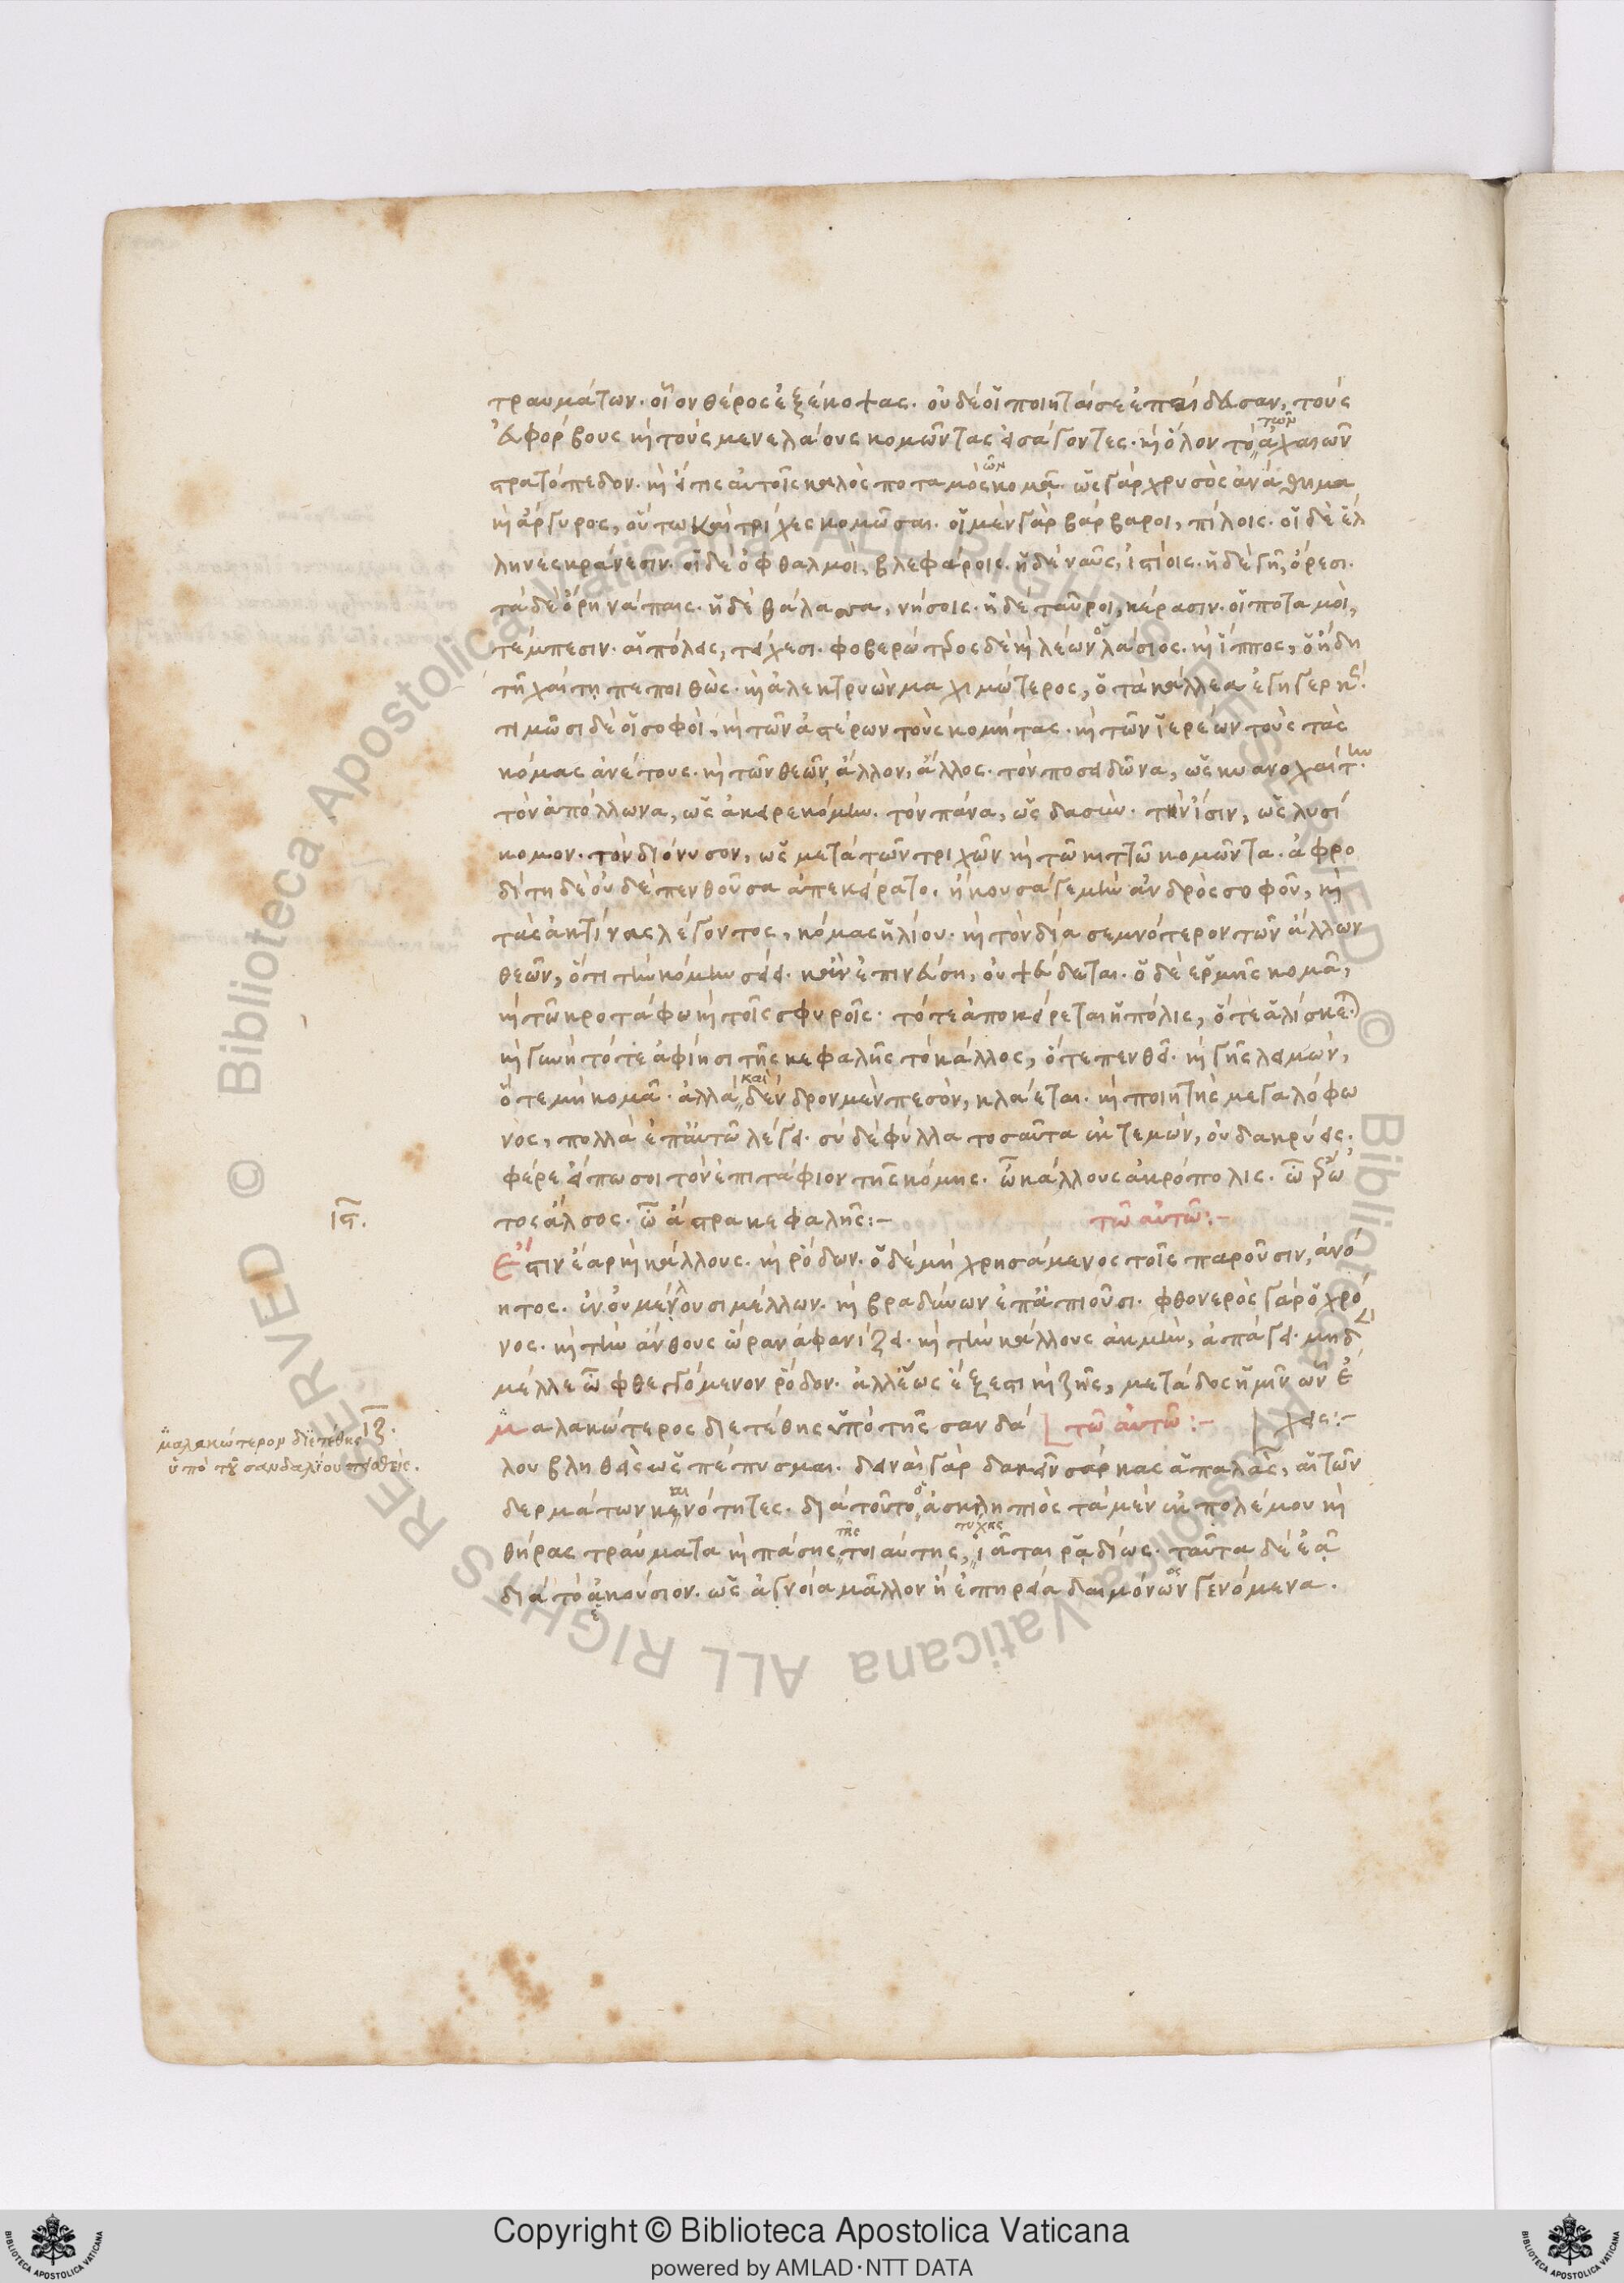 τραυμάτων. οἷον θέρος ἐξέκοψας. οὐδὲ οἱ ποιηταί σε ἔπεισαν, τοὺς
εὐφόρβους καὶ τοὺς μενελάους κομῶντας εἰσάγοντες. καὶ ὅλον τὸ τῶν ἀχαιῶν
στρατόπεδον. καὶ εἴ τις αὐτοῖς καλὸς ποταμὸς κομᾷ. ὡς γὰρ χρυσὸς ἀνάθημα
καὶ ἄργυρος, οὕτω καὶ τρίχες κομῶσαι. οἱ μὲν γὰρ βάρβαροι, πίλοις. οἱ δὲ ἕλ
ληνες κράνεσιν. οἱ δὲ ὀφθαλμοὶ, βλεφάροις. ἡ δὲ ναῦς, ἱστίοις. ἡ δὲ γῆ, ὄρεσι.
τὰ δὲ ὄρη νάπαις. ἡ δὲ θάλασσα, νήσοις. οἱ δὲ ταῦροι, κέρασιν. οἱ ποταμοὶ,
τέμπεσιν. αἱ πόλεις, τείχεσι. φοβερώτερος δὲ καὶ λέων ὁ λάσιος. καὶ ἵππος, ὁ ἤδη
τῇ χαίτῃ πεποιθώς. καὶ ἀλεκτρυὼν μαχιμώτερος, ὁ τὰ κάλλεα ἐγηγερκώς.
τιμῶσι δὲ οἱ σοφοὶ, καὶ τῶν ἀστέρων τοὺς κομήτας. καὶ τῶν ἱερέων τοὺς τὰς
κόμας ἀνέτους. καὶ τῶν θεῶν ἄλλον, ἄλλος. τὸν ποσειδῶνα, ὡς κυανοχαίτην.
τὸν ἀπόλλωνα, ὡς ἀκειρεκόμην. τὸν πᾶνα, ὡς δασύν. τὴν ἶσιν, ὡς λυσί
κομον. τὸν διόνυσον, ὡς μετὰ τῶν τριχῶν καὶ τῷ κιττῷ κομῶντα. ἀφρο
δίτη δὲ οὐδὲ πενθοῦσα ἀπεκείρατο. ἤκουσά γε μὴν ἀνδρὸς σοφοῦ, καὶ
τὰς ἀκτῖνας λέγοντος, κόμας ἡλίου. καὶ τὸν δία σεμνότερον τῶν ἄλλων
θεῶν, ὅτι τὴν κόμην σείει. κἂν ἐπινεύσῃ, οὐ ψεύδεται. ὁ δὲ ἑρμῆς κομᾷ,
καὶ τῷ κροτάφῳ καὶ τοῖς σφυροῖς. τότε ἀποκείρεται ἡ πόλις, ὅτε ἁλίσκεται
καὶ γυνὴ τότε ἀφίησι τῆς κεφαλῆς τὸ κάλλος, ὅτε πενθεῖ. καὶ γῆς λειμών,
ὅτε μὴ κομᾷ. ἀλλὰ καὶ δένδρον μὲν πεσὸν, κλαίεται. καὶ ποιητὴς μεγαλόφω
νος, πολλὰ ἐπ' αὐτῷ λέγει. σὺ δὲ φύλλα τοσαῦτα ἐκτεμών, οὐ δακρύεις.
φέρε εἴπω σοι τὸν ἐπιτάφιον τῆς κόμης. ὦ κάλλους ἀκρόπολις. ὦ ἔρω
ιϛ.
τος ἄλσος. ὦ ἄστρα κεφαλῆς:– τῷ αὐτῷ:–
Ἔστιν ἔαρ καὶ κάλλους. καὶ ῥόδων. ὁ δὲ μὴ χρησάμενος τοῖς παροῦσιν, ἀνό
ητος. ἐν οὐ μένουσι μέλλων. καὶ βραδύνων ἐπ' ἀπιοῦσι. φθονερὸς γὰρ ὁ χρό
νος. καὶ τὴν ἄνθους ὥραν ἀφανίζει. καὶ τὴν κάλλους ἀκμὴν, ἀπάγει. μηδὲν
μέλλε ὦ φθεγγόμενον ῥόδον. ἀλλ' ἕως ἔξεστι καὶ ζῇς, μετάδος ἡμῖν ὧν ἔ
χεις:–
ιζ.
μαλακώτερος διετέθης ὑπὸ τῆς σανδά τῷ αὐτῷ:–
μαλακώτερον διετέθης
ὑπὸ τοῦ σανδαλίου πιεσθείς.
λου βληθεὶς ὡς πέπυσμαι. δειναὶ γὰρ δακεῖν σάρκας ἁπαλὰς, αἱ τῶν
δερμάτων καινότητες. διὰ τοῦτο ὁ ἀσκληπιὸς τὰ μὲν ἐκ πολέμου καὶ
θήρας τραύματα καὶ πάσης τῆς τοιαύτης τύχης, ἰᾶται ῥᾳδίως. ταῦτα δὲ ἐᾷ
διὰ τὸ ἀκούσιον. ὡς ἀγνοίᾳ μᾶλλον ἢ ἐπηρείᾳ δαιμόνων γενόμενα.
© Biblioteca Apostolica Vaticana ALL RIGHTS RESERVED
© Biblioteca Apostolica Vaticana ALL RIGHTS RESERVED
Copyright © Biblioteca Apostolica Vaticana
powered by AMLAD·NTT DATA
BIBLIOTECA APOSTOLICA VATICANA
BIBLIOTECA APOSTOLICA VATICANA